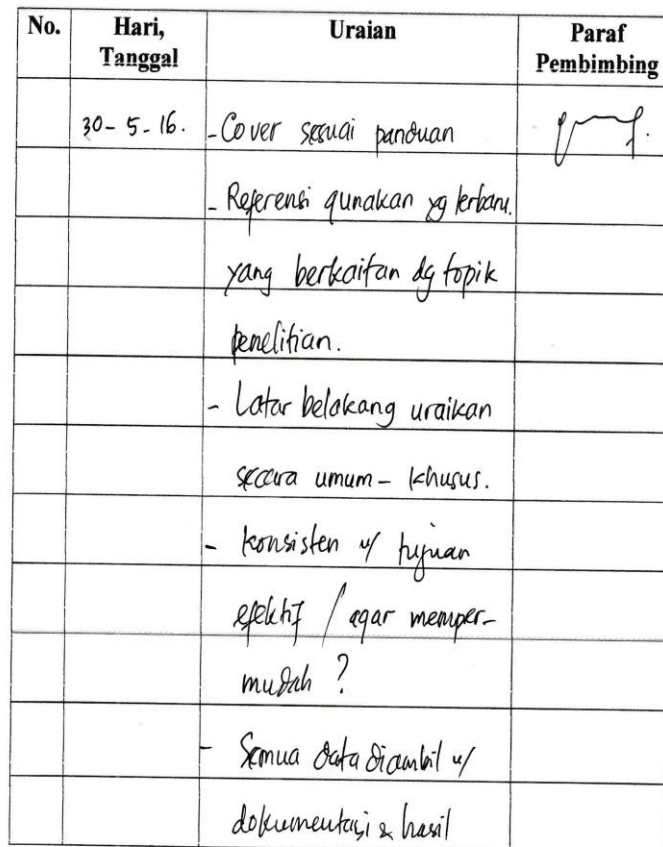 No. Hari, Tanggal Uraian Paraf Pembimbing
30-5-16. - Cover sesuai panduan
- Referensi gunakan yg terbaru.
yang berkaitan dg topik
penelitian.
- Latar belakang uraikan
secara umum - khusus.
- konsisten u/ tujuan
efektif / agar memper-
mudah ?
- Semua data diambil u/
dokumentasi & hasil